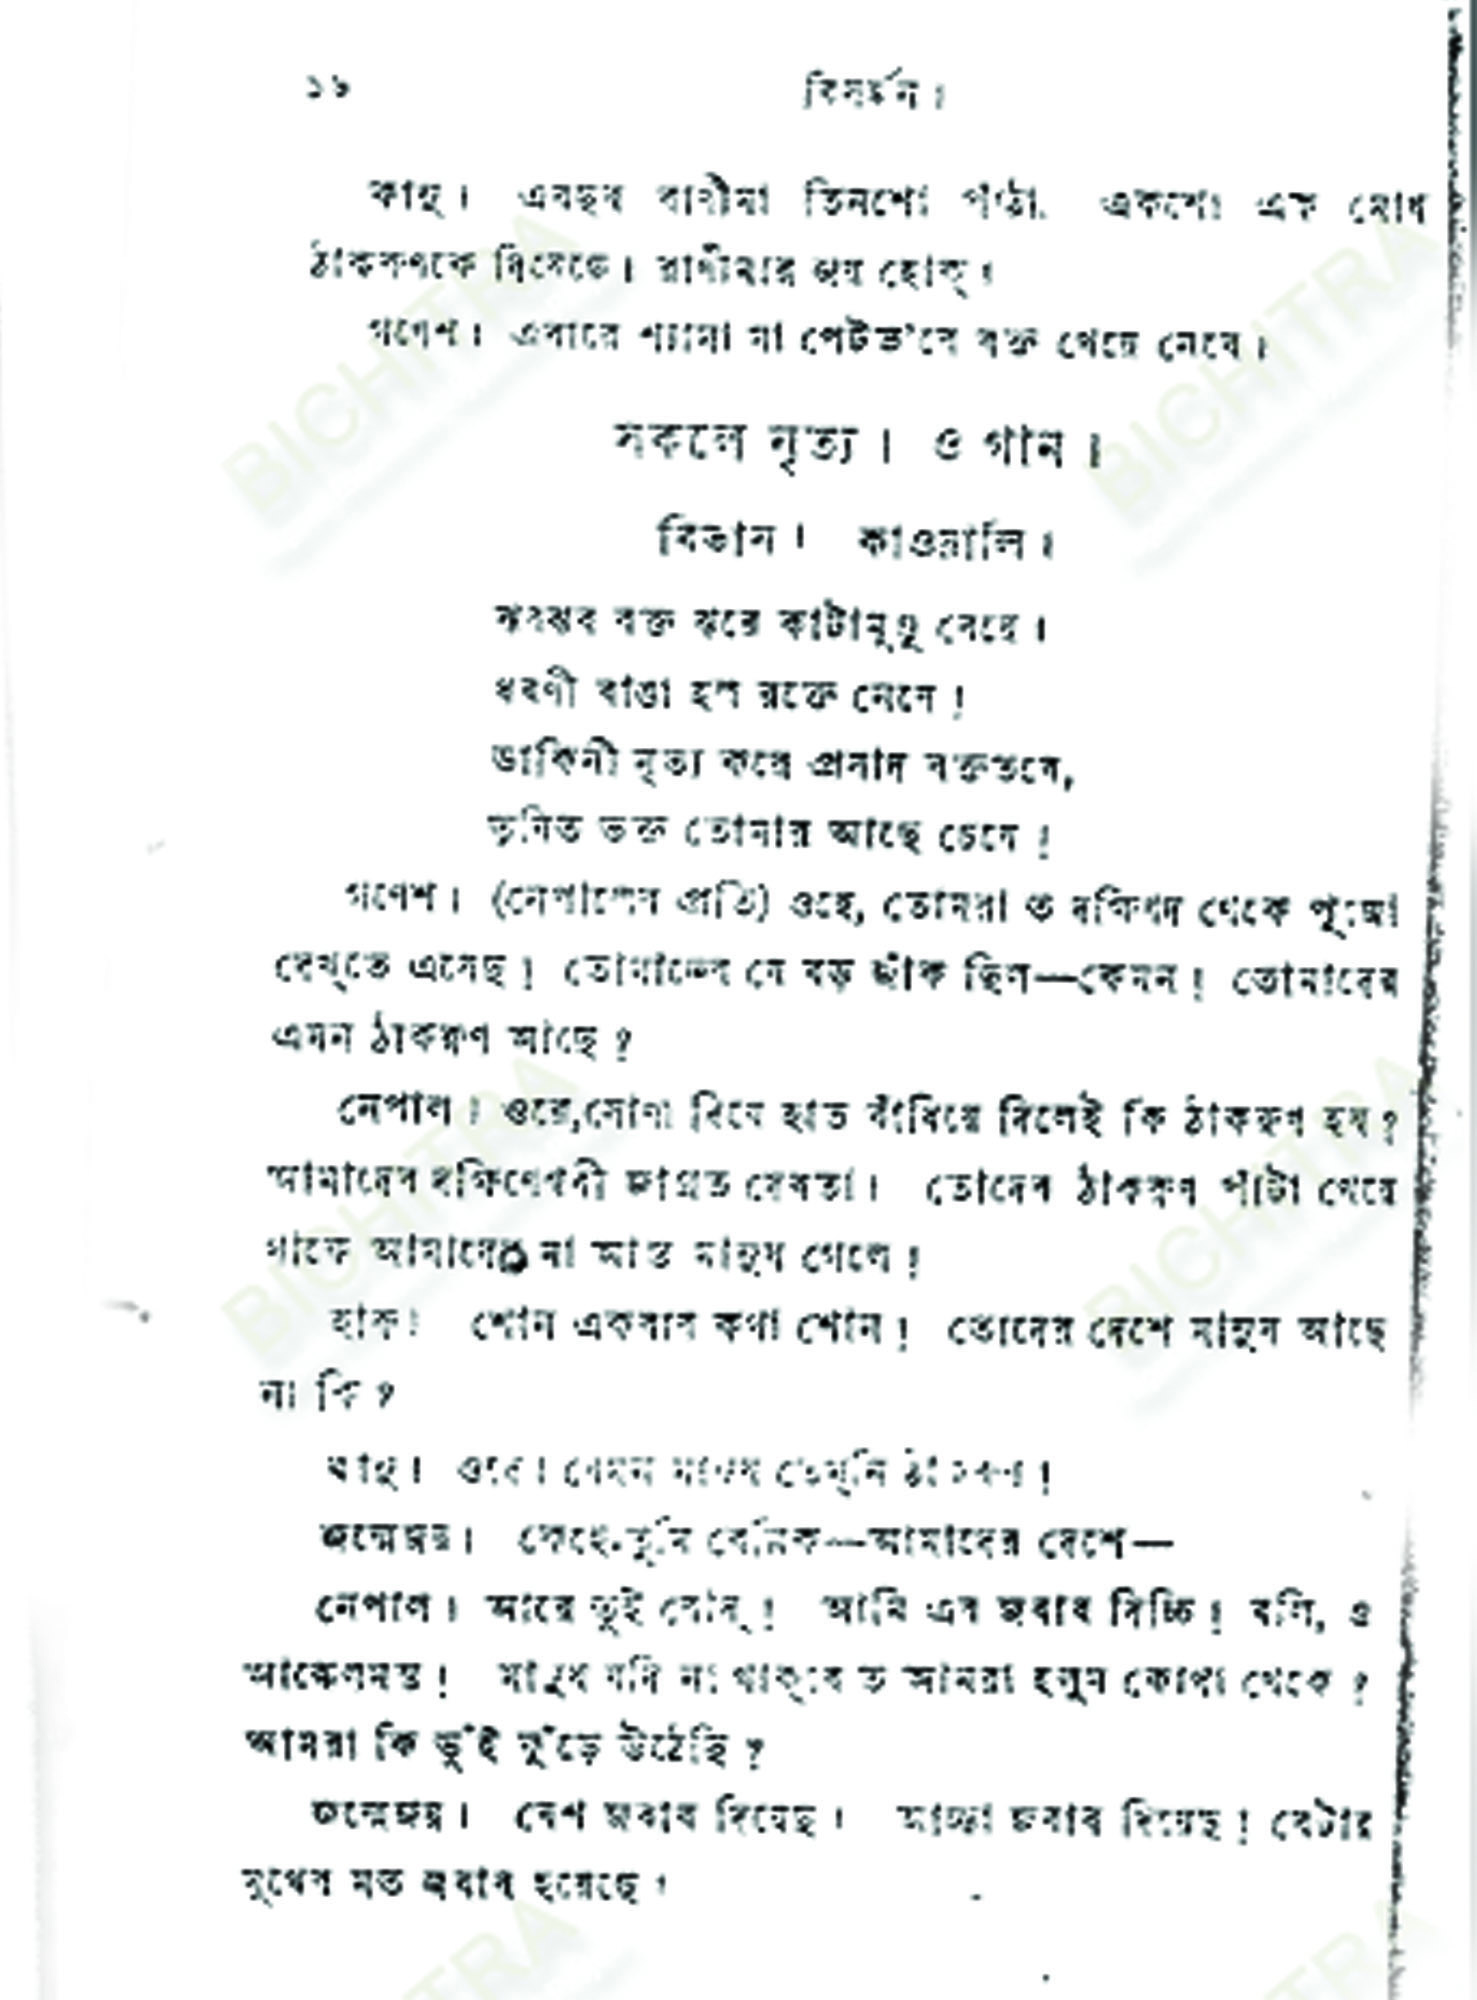 ১৬ বিসর্জ্জন।
কানু। এবছর রাণীমা তিনশো পাঁঠা একশো এক মোষ
ঠাকরুণকে দিয়েছে। রাণীমার জয় হোক্।
গণেশ। এবারে শ্যামা মা পেটভ'রে রক্ত খেয়ে নেবে।
সকলে নৃত্য। ও গান।
বিভাস। কাওয়ালি।
ঝরঝর রক্ত ঝরে কাটামুণ্ডু বেয়ে।
ধরণী রাঙা হল রক্তে নেয়ে!
ডাকিনী নৃত্য করে প্রসাদ রক্ততরে,
তৃষিত ভক্ত তোমার আছে চেয়ে!
গণেশ। (নেপালের প্রতি) ওহে, তোমরা ত দক্ষিণদ থেকে পূজো
দেখ্‌তে এসেছ! তোমাদের যে বড় জাঁক ছিল—কেমন! তোমাদের
এমন ঠাকরুণ আছে?
নেপাল। ওরে, সোণা দিয়ে হাত বাঁধিয়ে দিলেই কি ঠাকরুণ হয়?
আমাদের দক্ষিণেশ্বরী জাগ্রত দেবতা। তোদের ঠাকরুণ পাঁটা খেয়ে
থাকে আমাদের মা আস্ত মানুষ গেলে!
হারু। শোন একবার কথা শোন! তোদের দেশে মানুষ আছে
না কি?
কানু। ওরে। যেমন মানুষ তেম্‌নি ঠাকরুণ!
জন্মেজয়। কেহে তুমি বেল্লিক—আমাদের দেশে—
নেপাল। আরে তুই থাম্! আমি এর জবাব দিচ্চি! বলি, ও
আক্কেলমন্ত! মানুষ যদি না থাক্‌বে ত আমরা হলুম কোথা থেকে?
আমরা কি ভুঁই ফুঁড়ে উঠেছি?
জন্মেজয়। বেশ জবাব দিয়েছ। আচ্ছা জবাব দিয়েছ! বেটার
মুখের মত জবাব হয়েছে।